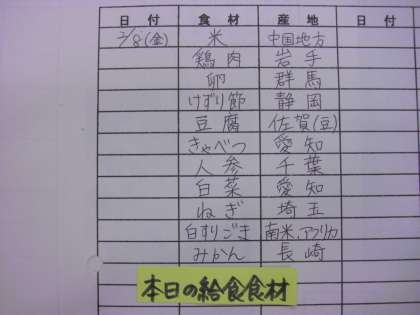 日付 食材 産地 日付
2/8(金) 米 中国地方
鶏肉 岩手
卵 群馬
けずり節 静岡
豆腐 佐賀(豆)
きゃべつ 愛知
人参 千葉
白菜 愛知
ねぎ 埼玉
白すりごま 南米、アフリカ
みかん 長崎
本日の給食食材